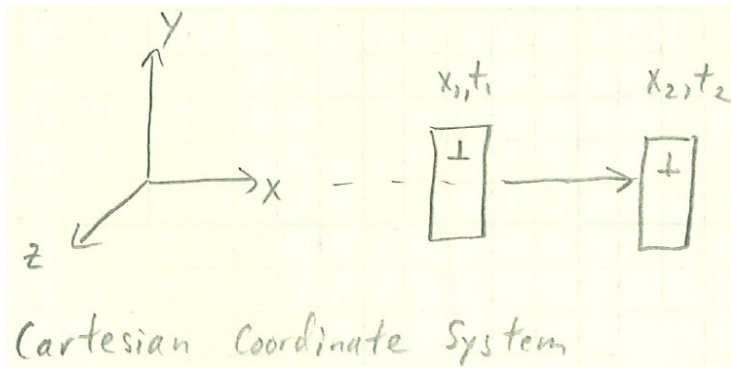 y
x₁,t₁ x₂,t₂
1 1
x
z
Cartesian Coordinate System